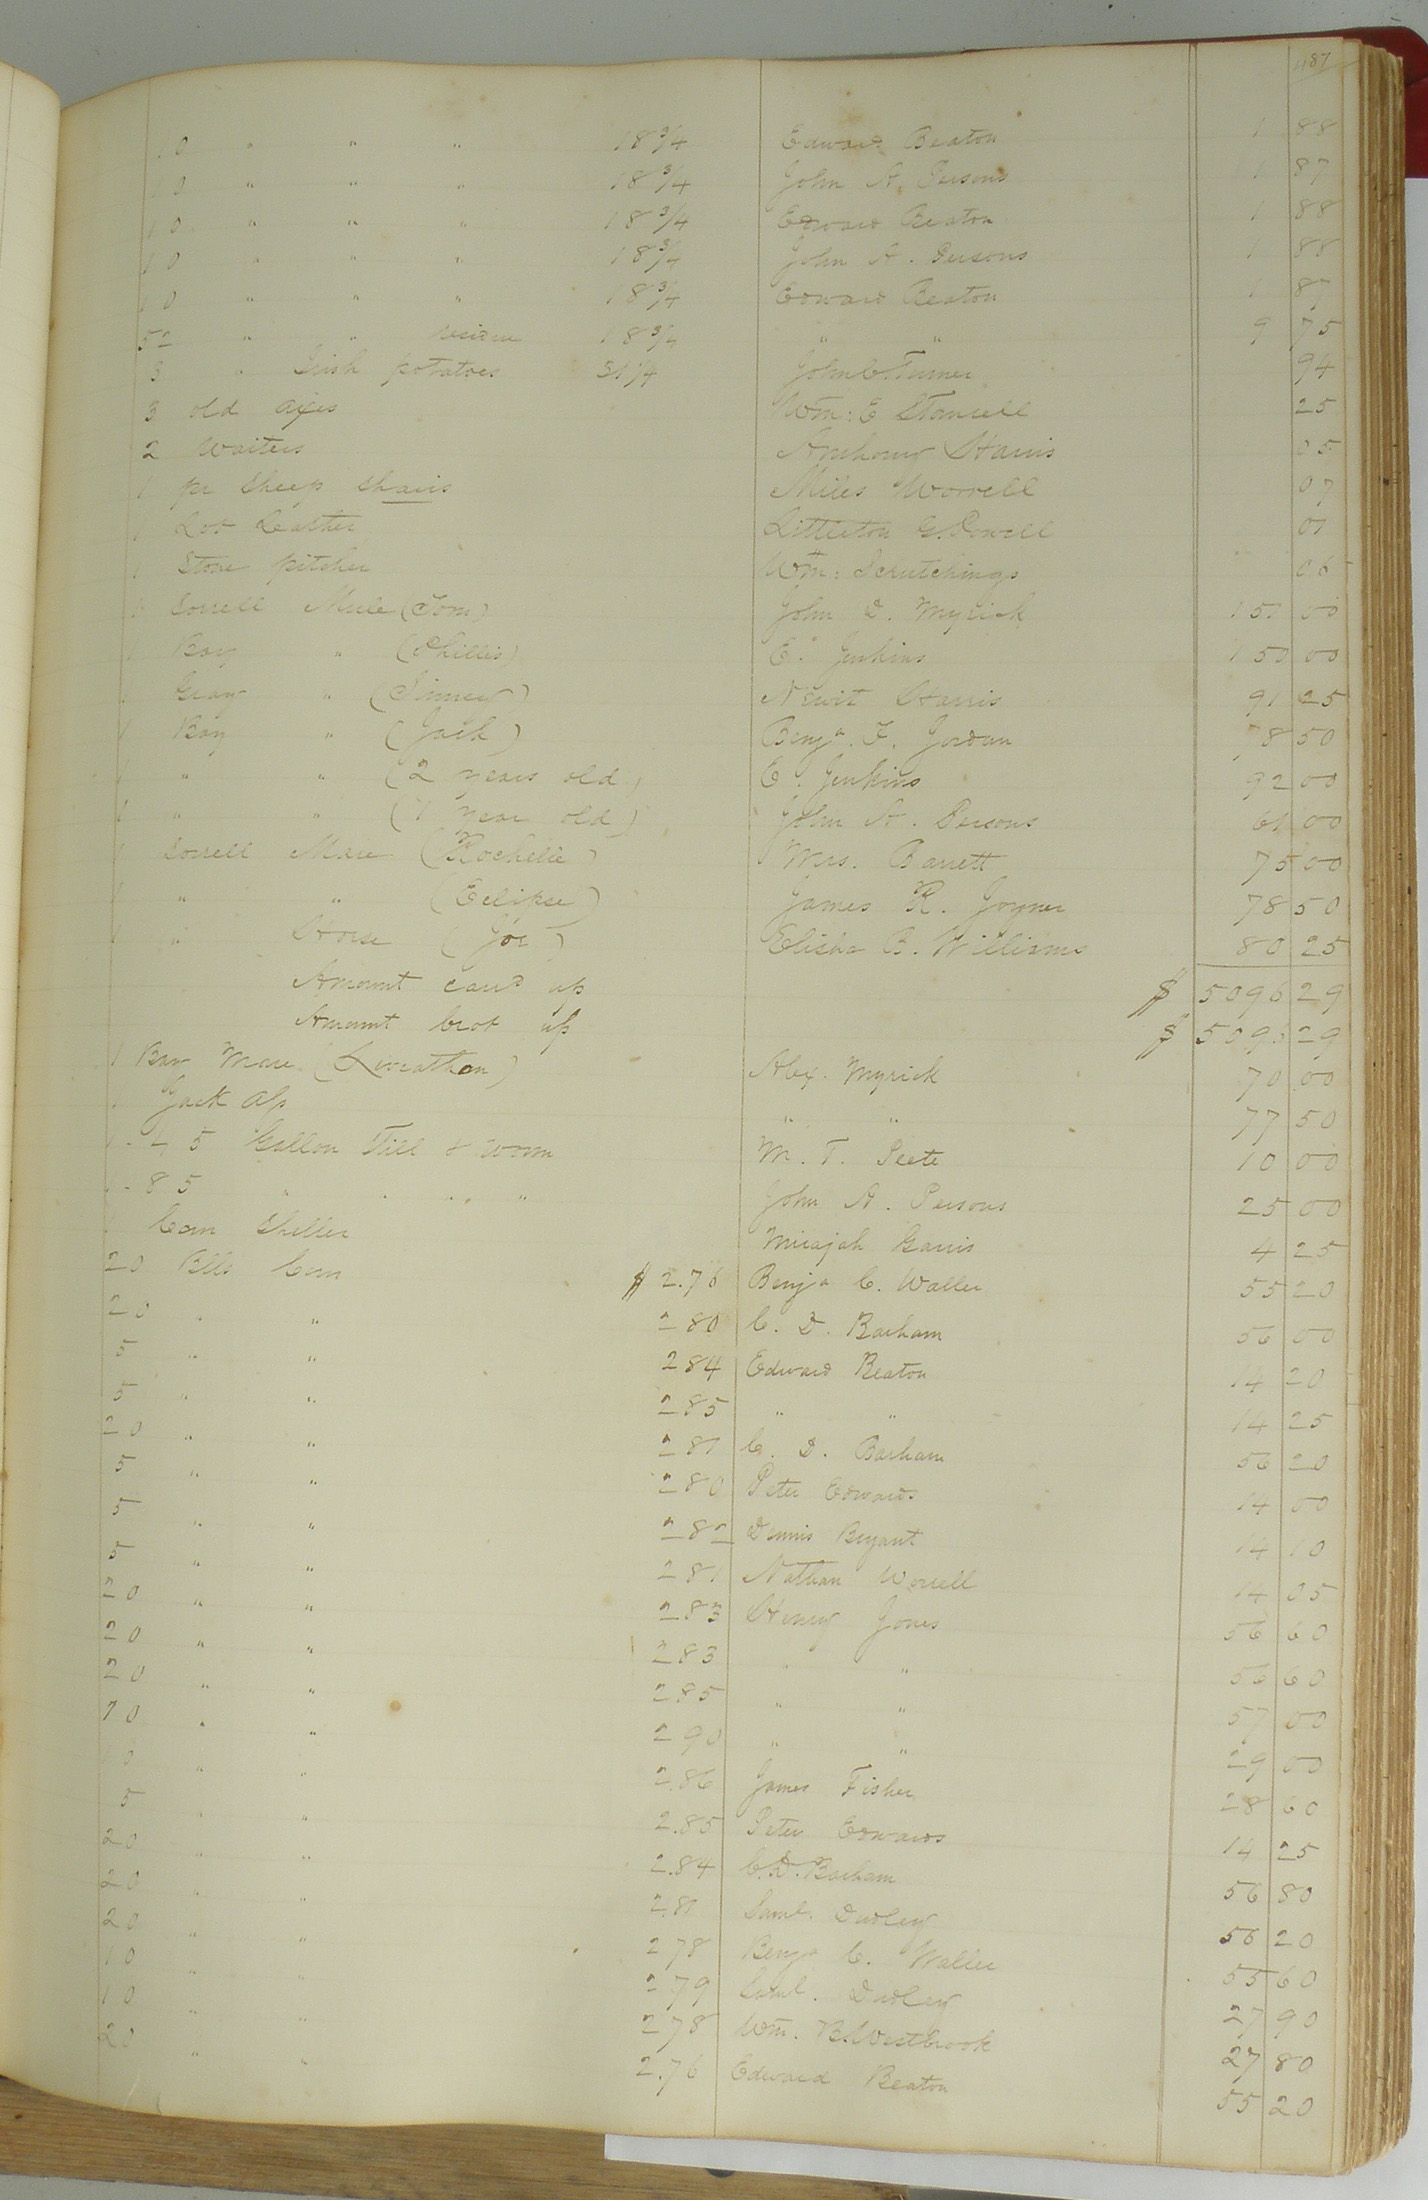 487
10 " " " 18 3/4 Edward Beaton 1 88
10 " " " 18 3/4 John A. Persons 1 87
10 " " " 18 3/4 Edward Beaton 1 88
10 " " " 18 3/4 John A. Persons 1 88
10 " " " 18 3/4 Edward Beaton 1 87
52 " " residue 18 3/4 " " 9 75
3 " Irish potatoes 31 1/4 John C. Turner 94
3 old axes Wm: E Stancell 25
2 Waiters Anthony Harris 05
1 pr Sheep Shairs Miles Worrell 07
1 Lot Leather Littleton G. Powell 01
1 Stone pitcher Wm: Scrutchings 06
1 Sorrell Mule (Tom) John D. Myrick 151 00
1 Bay " (Phillis) E. Jenkins 150 00
1 Gray " Newit Harris 91 25
1 Bay " (Jack) Benja. F. Jordan 78 50
1 " " (2 years old) E. Jenkins 92 00
1 " " (1 year old) John A. Persons 61 00
1 Sorrell Mare (Rochelle) Mrs. Barrett 75 00
1 " " (Eclipse) James R. Joyner 78 50
1 " Horse (Joe) Elisha B. Williams 80 25
Amount card up $ 5096 29
Amount brot up $ 5096 29
1 Bay Mare (Leviathan) Alex. Myrick 70 00
1 Jack ass " " 77 50
1 - 45 Gallon Still & worm M. T. Peete 10 00
1 - 85 " " " " John A. Persons 25 00
1 Corn Sheller Micajah Garris 4 25
20 Blls Corn $ 2.76 Benja C. Waller 55 20
20 " " 2 80 C. D. Barham 56 00
5 " " 2 84 Edward Beaton 14 20
5 " " 2 85 " " 14 25
20 " " 2 81 C. D. Barham 56 20
5 " " 2 80 Peter Edwards 14 00
5 " " 2 82 Dennis Bryant 14 10
5 " " 2 81 Nathan Worrell 14 05
20 " " 2 83 Henry Jones 56 60
20 " " 2 83 " " 56 60
20 " " 2.85 " " 57 00
10 " " 2 90 " " 29 00
10 " " 2.86 James Fisher 28 60
5 " " 2.85 Peter Edwards 14 25
20 " " 2.84 C. D. Barham 56 80
20 " " 2.81 Saml. Dudley 56 20
20 " " 2 78 Benja C. Waller 55 60
10 " " 2 79 Saml. Dudley 27 90
10 " " 2 78 Wm. B. Westbrook 27 80
20 " " 2.76 Edward Beaton 55 20